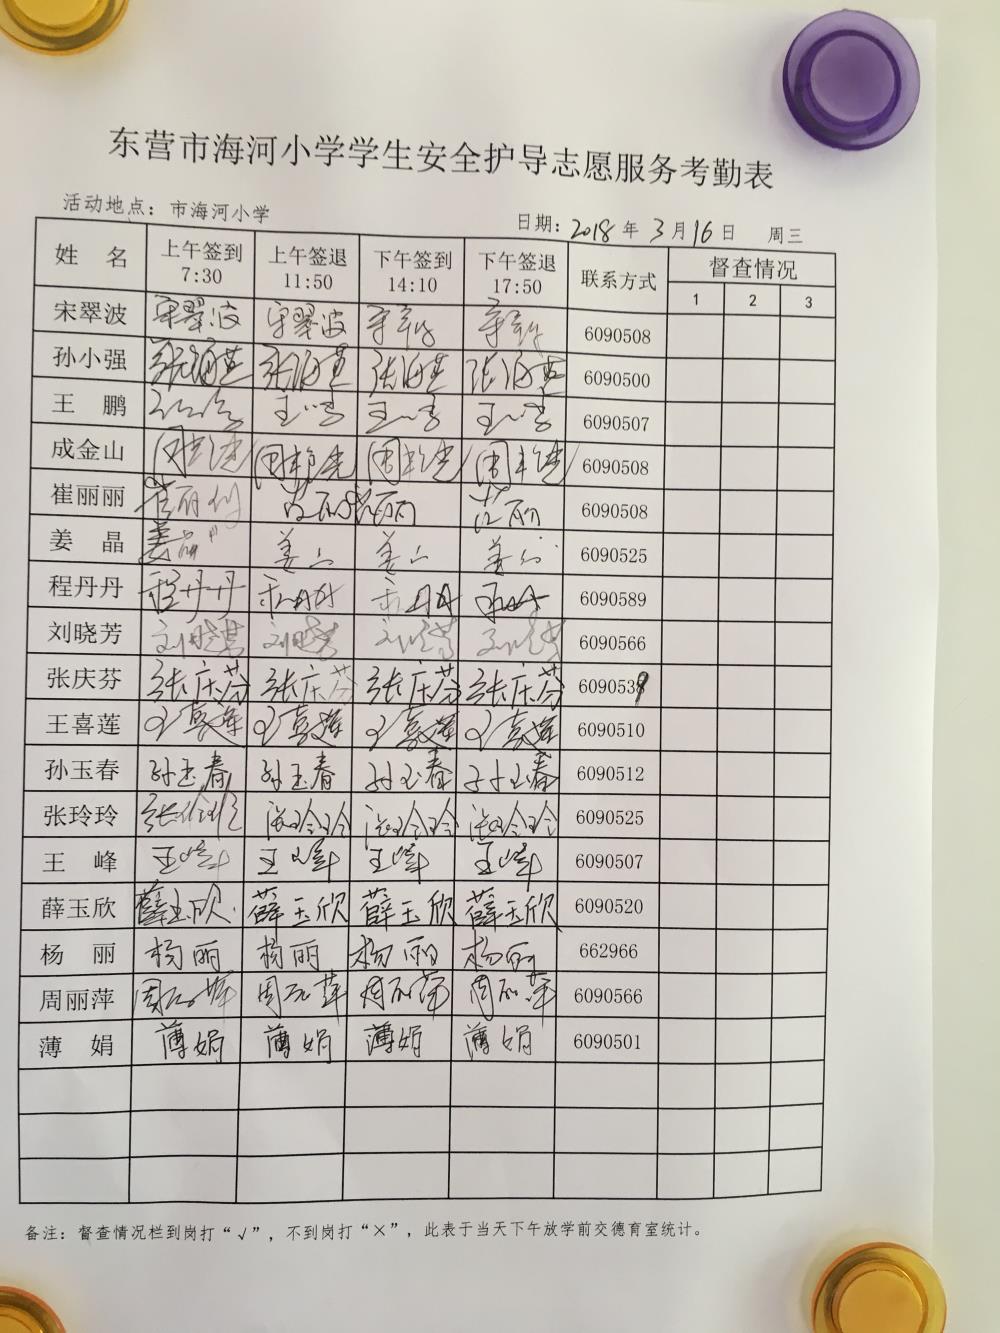 东营市海河小学学生安全护导志愿服务考勤表
活动地点：市海河小学 日期：2018年3月16日 周三
姓 名 上午签到 7:30 上午签退 11:50 下午签到 14:10 下午签退 17:50 联系方式 督查情况
1 2 3
宋翠波 宋翠波 宋翠波 6090508
孙小强 张海燕 张海燕 张海燕 张海燕 6090500
王 鹏 6090507
成金山 6090508
崔丽丽 6090508
姜 晶 姜晶 6090525
程丹丹 程丹丹 6090589
刘晓芳 刘晓芳 刘晓芳 刘晓芳 刘晓芳 6090566
张庆芬 张庆芬 张庆芬 张庆芬 张庆芬 6090539
王喜莲 王喜莲 王喜莲 王喜莲 王喜莲 6090510
孙玉春 孙玉春 孙玉春 孙玉春 孙玉春 6090512
张玲玲 张玲玲 张玲玲 张玲玲 6090525
王 峰 王峰 王峰 王峰 王峰 6090507
薛玉欣 薛玉欣 薛玉欣 薛玉欣 薛玉欣 6090520
杨 丽 杨丽 杨丽 杨丽 杨丽 662966
周丽萍 周丽萍 周丽萍 周丽萍 周丽萍 6090566
薄 娟 薄娟 薄娟 薄娟 薄娟 6090501
备注：督查情况栏到岗打“√”，不到岗打“×”，此表于当天下午放学前交德育室统计。